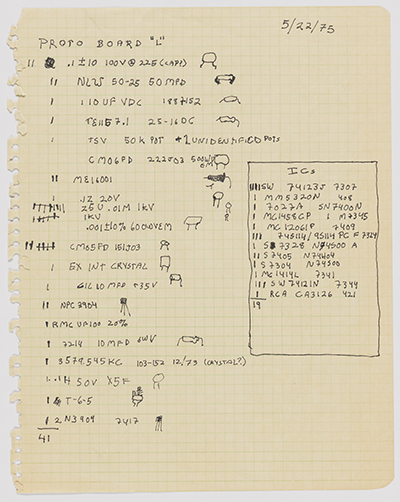 5/22/75
PROTO BOARD "L"
11 .1±10 100V @ 225 (CAPS)
11 NLW 50-25 50 MFD
1 110 UF VDC 1887152
1 TE1157.1 25-16 DC
1 TSV 50K POT + 2 UNIDENTIFIED POTS
CM06FD 222J03 500WV
11 ME16001
1 .12 20V
25U .01M 1KV
1KV
.001±10% 6000WEM
CM05FD 151J03
1 EX INT CRYSTAL
1 G1C 10MFD +35V
11 NPC 3904
1 RMC UP100 20%
1 7214 10 MFD 6WV
1 3579.545KC 103-152 12/73 (CRYSTAL?)
50V X5F
T-6-5
1 2N3904 7417
41
ICs
SW 74123J 7307
1 MM5320N 408
1 7027A SN7400N
1 MC1458CP 1 M7345
1 MC12061P 7409
111 74S114/9S114 PC F 7329
1 7328 N74500 A
11 S7405 N74H04
1 S7304 N74S00
1 MC1414L 7341
111 SW 74121N 7344
1 RCA CA3126 421
19